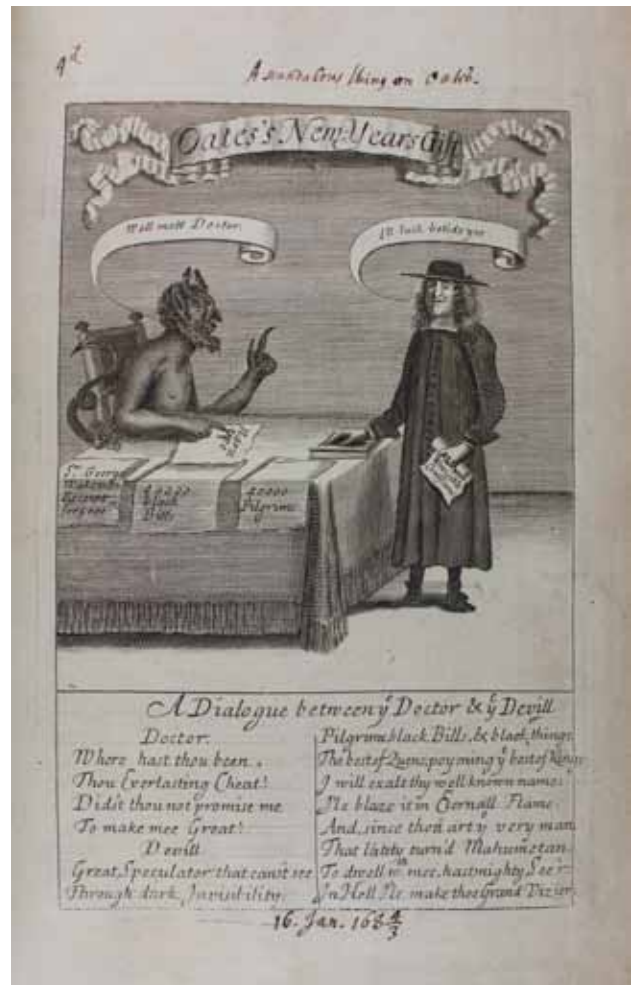 4d
A scandalous thing on Oates.
Oates's New-Years Gift
Well mett Doctor.
Ill luck betide yee
Sr. George
40000
black
Bills
40000
Pilgrims
A Dialogue between ye Doctor & ye Devill
Doctor.
Where hast thou been,
Thou Everlasting Cheat!
Didst thou not promise me
To make mee Great!
Devill
Great Speculator that canst see
Through dark Invisibility;
Pilgrims, black Bills, & black things
The best of Queens, poysning ye best of Kings
I will exalt thy well known name;
I'le blaze it in Eternall Flame.
And, since thou art ye very man
That lately turn'd Mahumetan
To dwell wth mee, hast mighty See'r
In Hell I'le make thee Grand Vizier.
16. Jan. 168 4/3